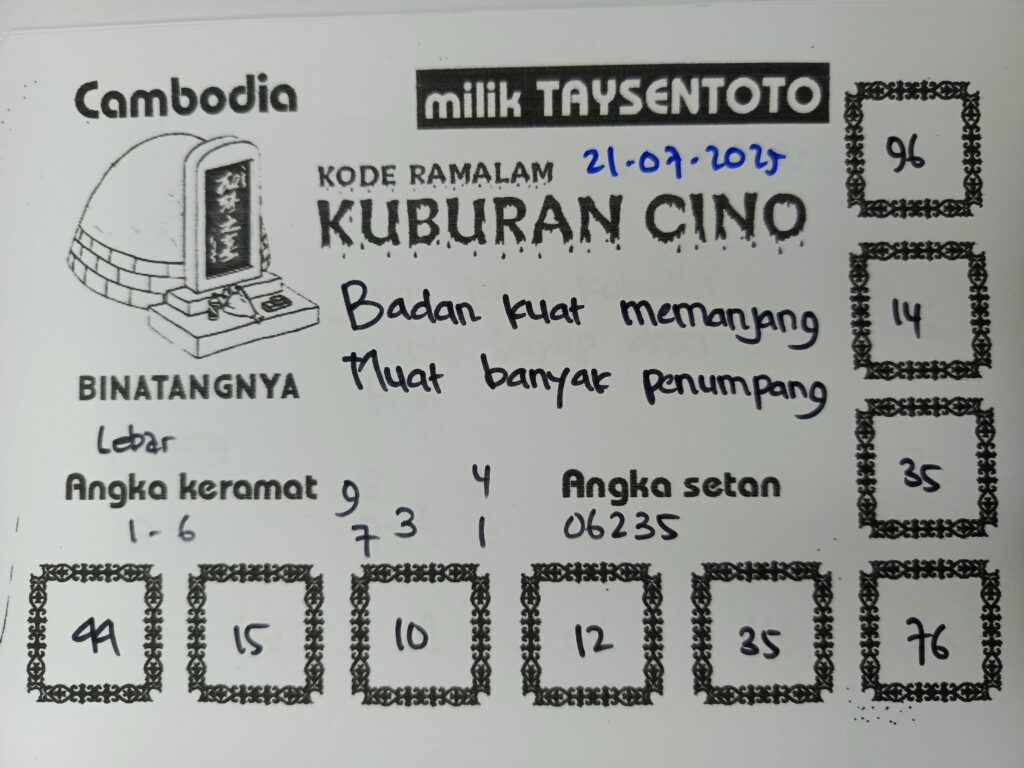 Cambodia
milik TAYSENTOTO
KODE RAMALAM 21-07-2025
KUBURAN CINO
Badan kuat memanjang
Muat banyak penumpang
BINATANGNYA
Lebar
Angka keramat
1-6
9 4
7 3 1
Angka setan
06235
96
14
35
44 15 10 12 35 76